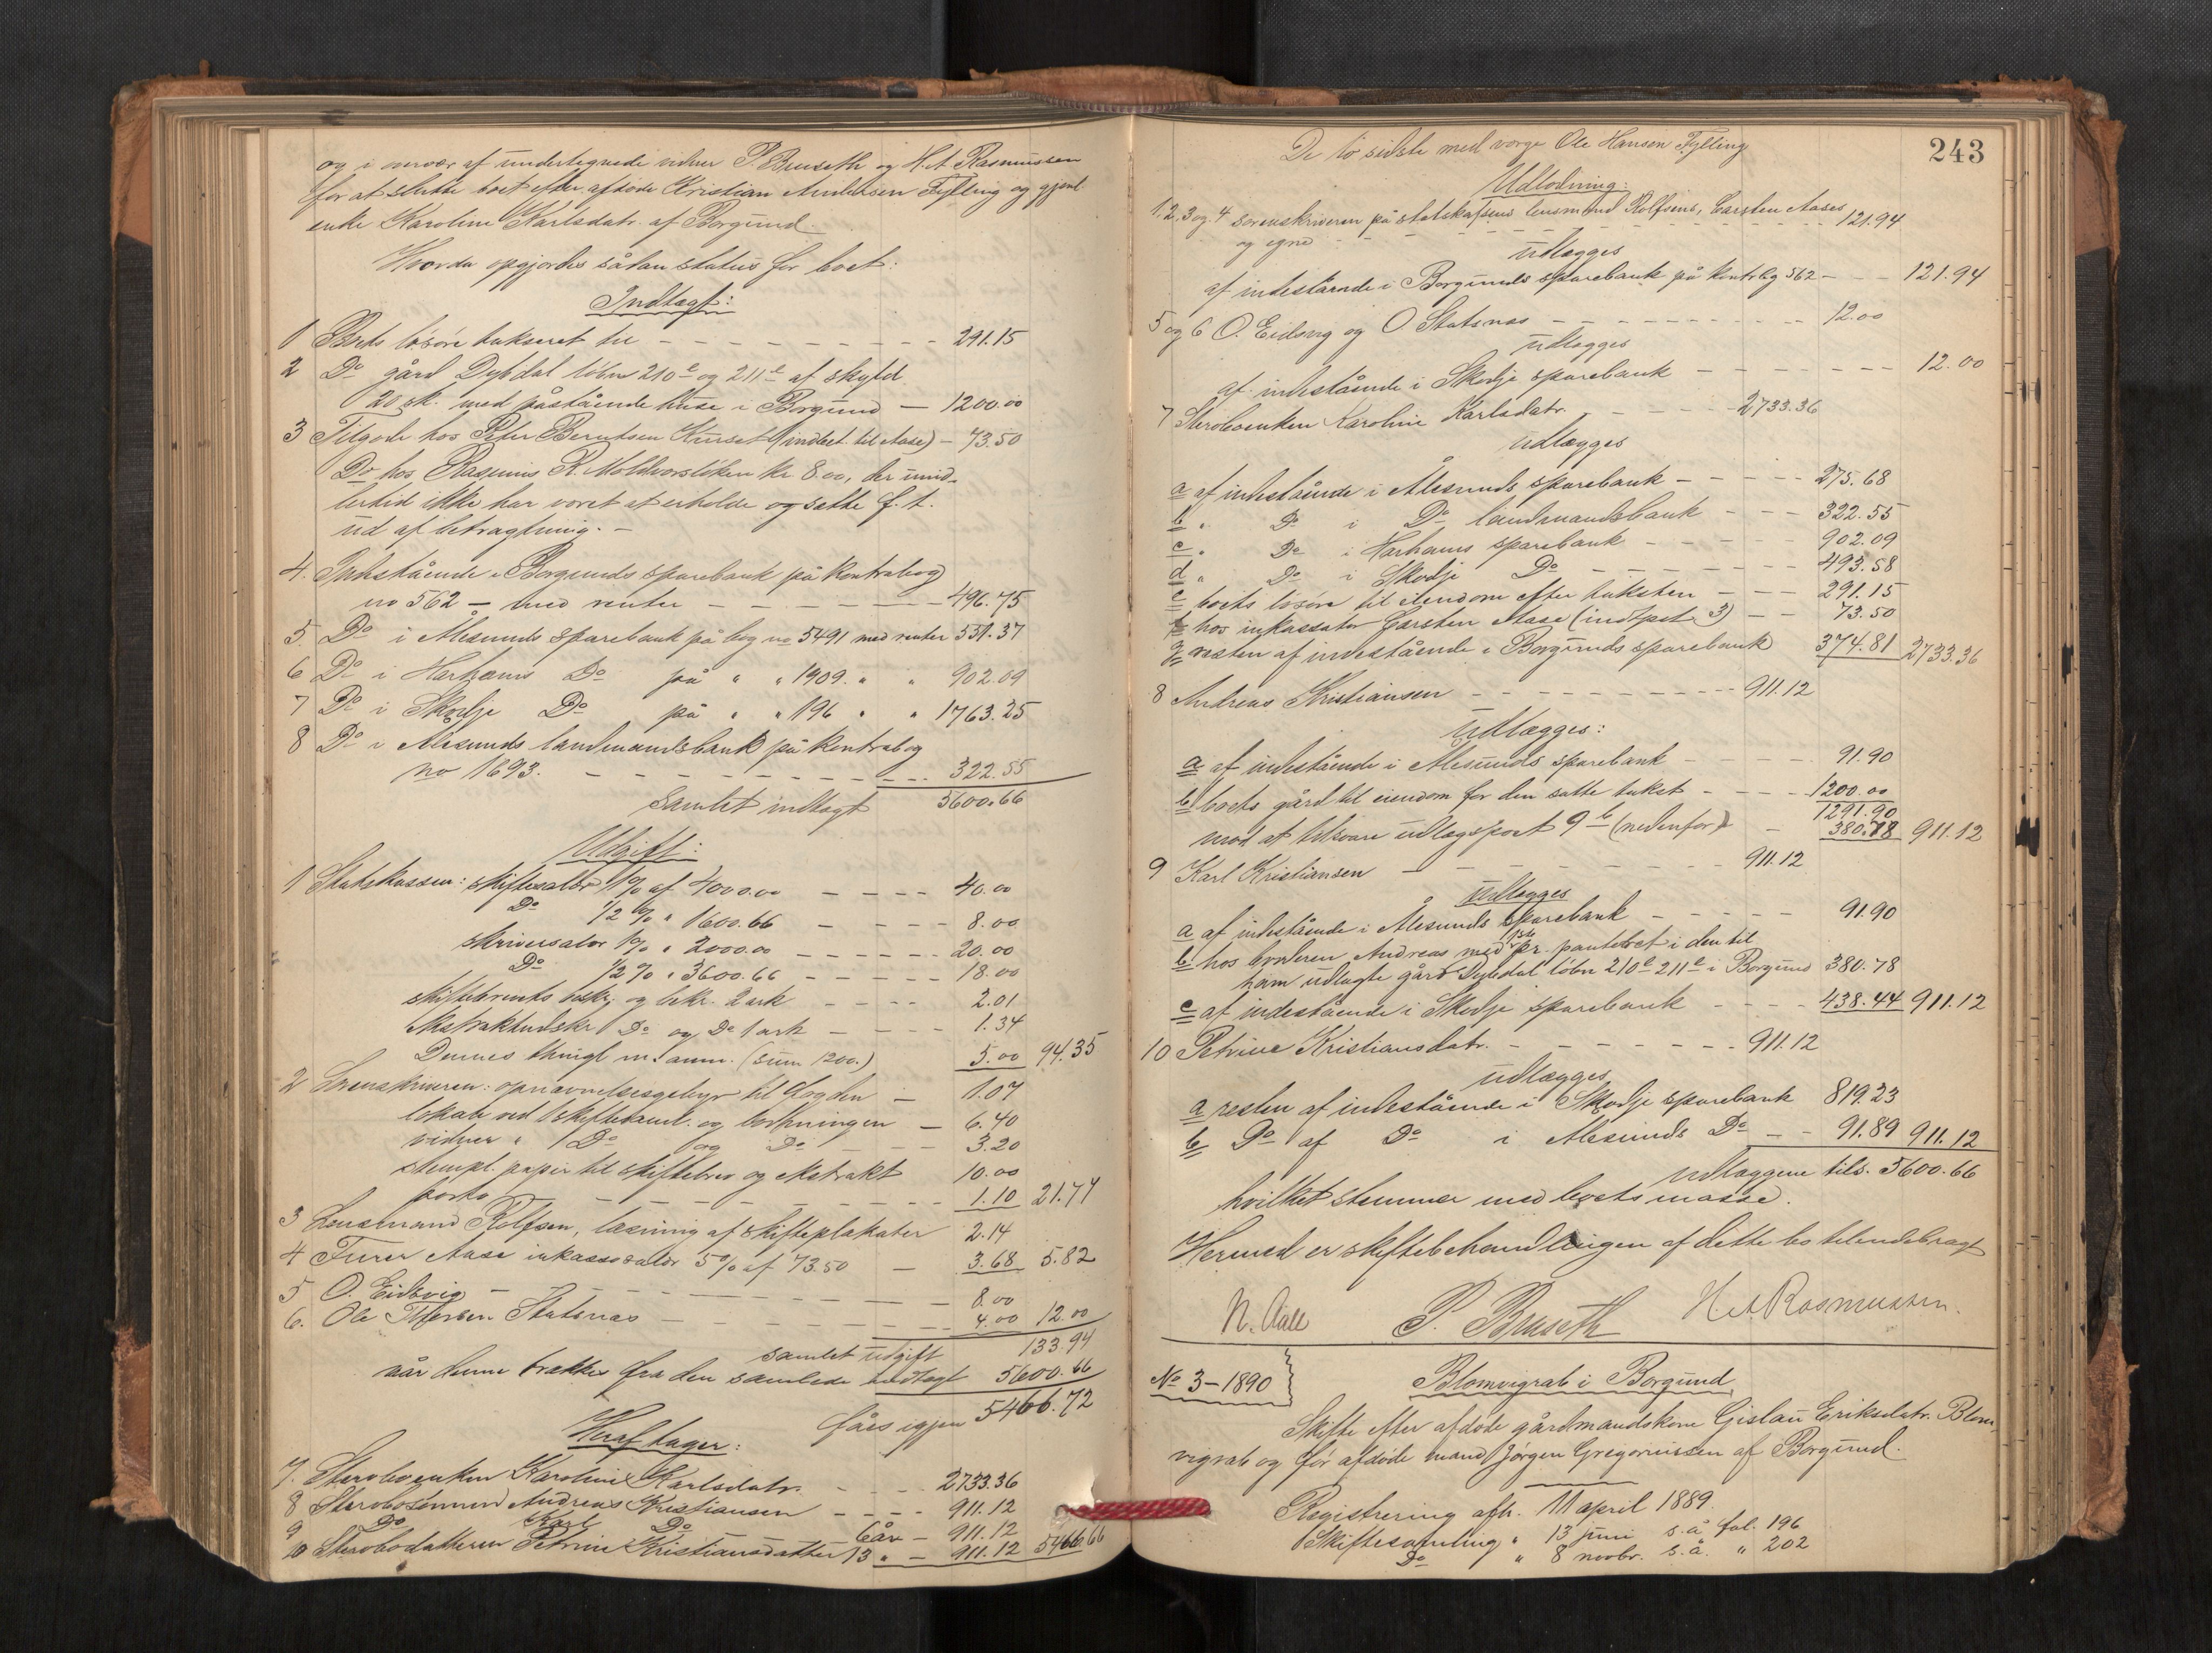 og i overvær af undertegnede vidner P. Bruseth og H. A. Rasmussen
for at slutte boet efter afdøde Kristian Andersen Fylling og gjenl.
enke Karoline Karlsdatr. af Borgund.
Hvorda opgjordes sålan status for boet:
Indtægt:
1 Boets løsøre takseret til - - - 291.15
2 Do gård Dybdal løbnr 210e og 211e af skyld
20 sk. med påstående huse i Borgund - 1200.00
3 Tilgode hos Peter Berntsen Hurset (indbet. til Aase) - 73.50
Do hos Rasmus R. Moldvorsløken kr 8.00, der imid-
lertid ikke har været at erholde og sætte f. t.
ud af betragtning. -
4. Indestående i Borgunds sparebank på kontrabog
no 562 - med renter - - - 496.75
5. Do i Ålesunds sparebank på bog no 5491 med renter 551.37
6 Do i Harhams Do på " " 1909. " " 902.09
7 Do i Skodje Do på " " 196 " " 1763.25
8 Do i Ålesunds landmandsbank på kontrabog
no 1693. - - - 322.55
samlet indtægt 5600.66
Udgift:
1 Statskassen: skiftesalær 1% af 4000.00 - - - 40.00
Do 1/2 % " 1600.66 - - - 8.00
skriversalær 1% " 2000.00 - - - 20.00
Do 1/2 % " 3600.66 - - - 18.00
skiftebrevets beskr. og bekr. 2 ark - - - 2.01
Ekstraktudskr Do og Do 1 ark - - - 1.34
Dennes thingl m. anm. (sum 1200.) 5.00 94.35
2 Sorenskriveren: opnævnelsesgebyr til fogden - 1.07
lokale ved 1 skiftesaml. og slutningen - 6.40
vidner " 1 Do og Do - 3.20
stempl. papir til skiftebrev og ekstrakt 10.00
porto - - - 1.10 21.77
3 Lensmand Rolfsen, læsning af skifteplakater 2.14
4 Furer Aase inkassosalær 5% af 73.50 - 3.68 5.82
5 O. Eidsvig - - - 8.00
6. Ole Petersen Statsnæs - - - 4.00 12.00
samlet udgift 133.94
når denne trækkes fra den samlede indtægt 5600.66
fåes igjen 5466.72
Heraf tager:
7. Stervboenken Karoline Karlsdatr. - - - 2733.36
8 Stervbosønnen Andreas Kristiansen - - - 911.12
9 Do Karl Do 6 år - 911.12
10 Stervbodatteren Petrine Kristiansdatter 13 " - 911.12 5466.66
243
De to sidste med værge Ole Hansen Fylling
Udlodning:
1. 2. 3 og. 4 sorenskriveren på statskassens lensmand Rolfsens, Carsten Aases
og egne - - - 121.94
udlægges
af indestående i Borgunds sparebank på kontrabog 562 - - - 121.94
5 og 6 O. Eidsvig og O Statsnæs - - - 12.00
udlægges
af indestående i Skodje sparebank - - - 12.00
7 Stervboenken Karoline Karlsdatr. - - - 2733.36
udlægges
a af indestående i Ålesunds sparebank - - - 275.68
b " Do i Do landmandsbank - - - 322.55
c " Do i Harhams sparebank - - - 902.09
d " Do i Skodje Do - - - 493.58
e boets løsøre til eiendom efter taksten - - - 291.15
f hos inkassator Carsten Aase (indt. post 3) - - 73.50
g resten af indestående i Borgunds sparebank 374.81 2733.36
8 Andreas Kristiansen - - - 911.12
udlægges:
a af indestående i Ålesunds sparebank - - - 91.90
b boets gård til eiendom for den satte takst - - - 1200.00
1291.90
mod at tilsvare udlægspost 9 b (nedenfor) - 380.78 911.12
9 Karl Kristiansen - - - 911.12
udlægges
a af indestående i Ålesunds sparebank - - - 91.90
b hos broderen Andreas med 1ste pr. panteret i den til
ham udlagte gård Dybdal løbnr 210e 211e i Borgund 380.78
c af indestående i Skodje sparebank - - - 438.44 911.12
10 Petrine Kristiansdatr. - - - 911.12
udlægges
a resten af indestående i Skodje sparebank 819.23
b Do af Do i Ålesunds Do - - 91.89 911.12
udlæggene tils. 5600.66
hvilket stemmer med boets masse.
Hermed er skiftebehandlingen af dette bo tilendebragt
N. Aall P. Bruseth H A Rasmussen.
No 3-1890
Blomvigrab i Borgund
Skifte efter afdøde gårdmandskone Gislau Eriksdatr. Blom-
vigrab og før afdøde mand Jørgen Gregoriussen af Borgund.
Registrering afh. 11 april 1889.
Skiftesamling " 13 juni s. å fol. 196
Do " 8 novbr. s. å. " 202